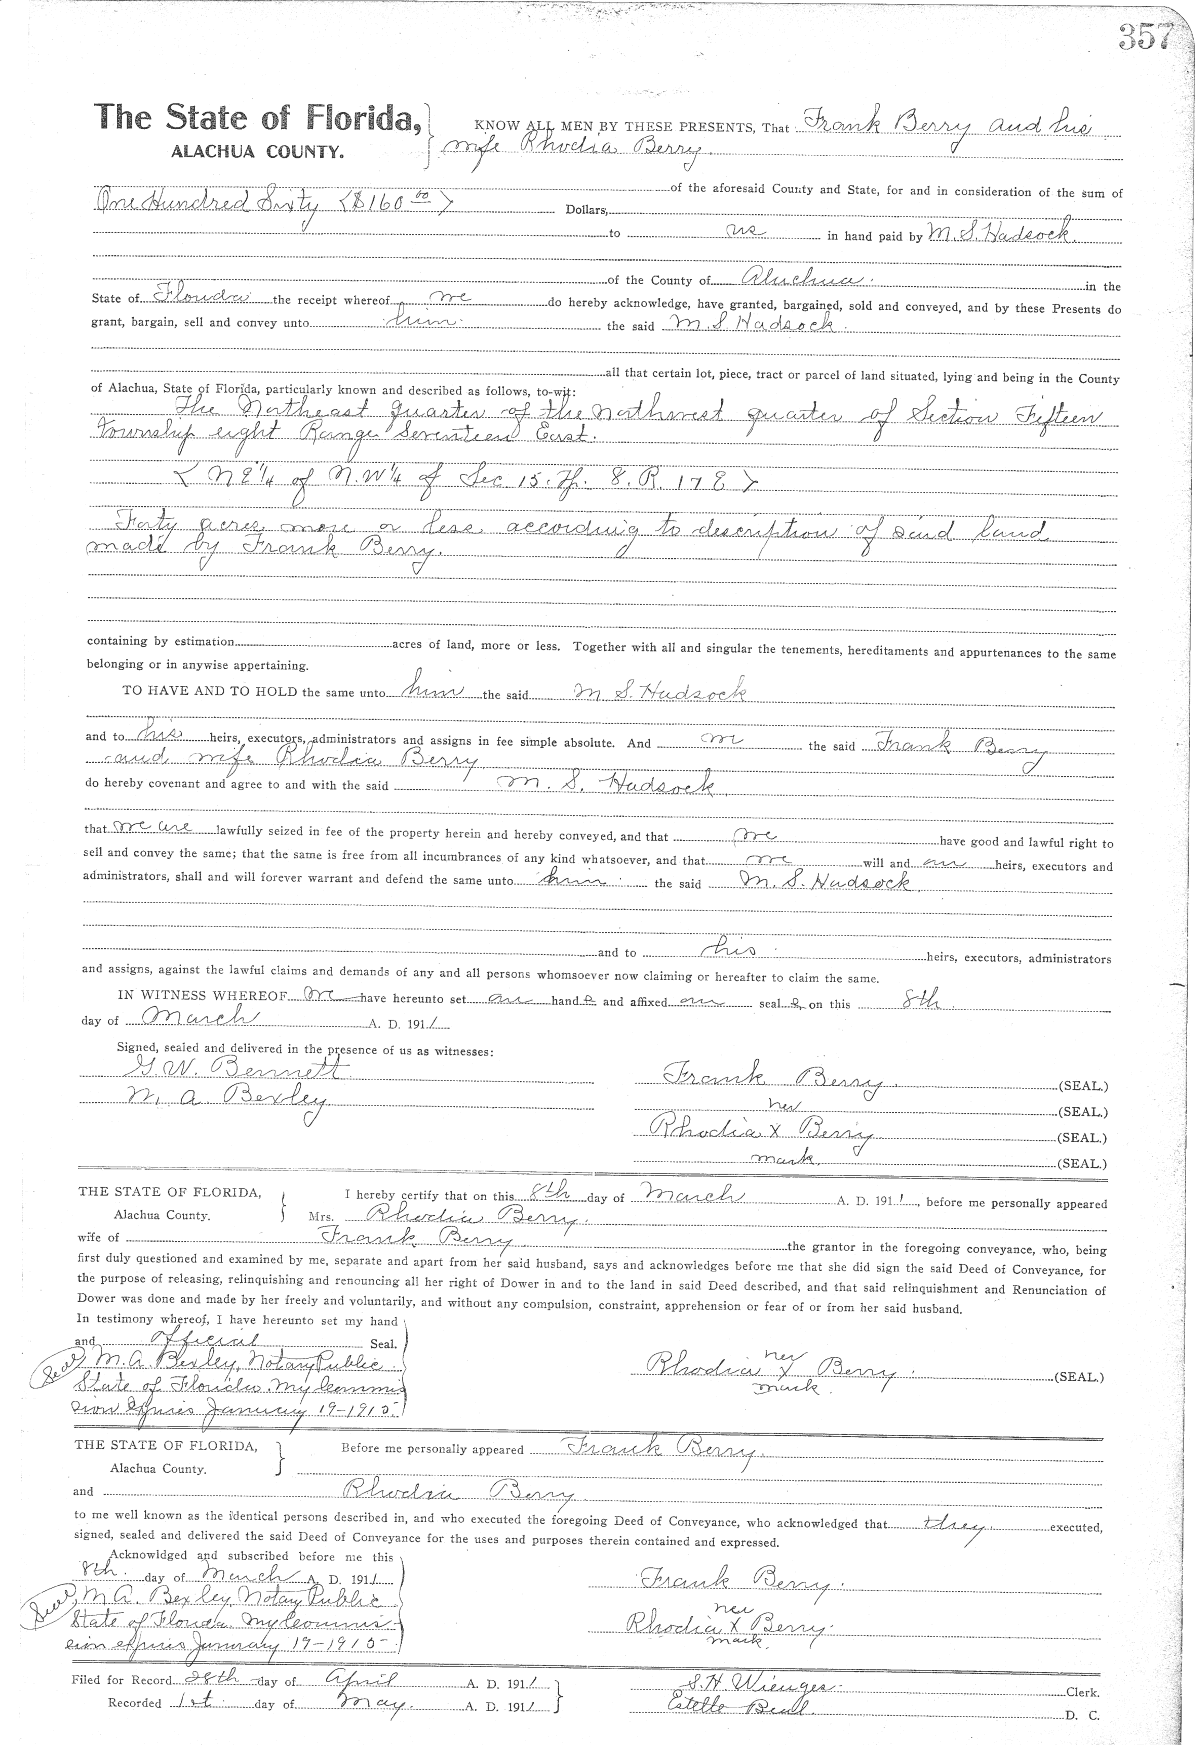 357
The State of Florida, KNOW ALL MEN BY THESE PRESENTS, That Frank Berry and his
ALACHUA COUNTY. wife Rhodia Berry
of the aforesaid County and State, for and in consideration of the sum of
One Hundred Sixty <$160 00> Dollars,
to us in hand paid by M. S. Hadsock.
of the County of Aluchua. in the
State of Florida the receipt whereof we do hereby acknowledge, have granted, bargained, sold and conveyed, and by these Presents do
grant, bargain, sell and convey unto him. the said M. S. Hadsock.
all that certain lot, piece, tract or parcel of land situated, lying and being in the County
of Alachua, State of Florida, particularly known and described as follows, to-wit:
The Northeast quarter of the Northwest quarter of Section Fifteen
Township eight Range Seventeen East.
<N E 1/4 of N. W 1/4 of Sec. 15. Tp. 8. R. 17 E>
Forty acres more or less according to description of said land
made by Frank Berry.
containing by estimation acres of land, more or less. Together with all and singular the tenements, hereditaments and appurtenances to the same
belonging or in anywise appertaining.
TO HAVE AND TO HOLD the same unto him the said M S. Hadsock
and to his heirs, executors, administrators and assigns in fee simple absolute. And we the said Frank Berry
and wife Rhodia Berry
do hereby covenant and agree to and with the said M. S. Hadsock
that we are lawfully seized in fee of the property herein and hereby conveyed, and that we have good and lawful right to
sell and convey the same; that the same is free from all incumbrances of any kind whatsoever, and that we will and our heirs, executors and
administrators, shall and will forever warrant and defend the same unto him the said M. S. Hadsock
and to his heirs, executors, administrators
and assigns, against the lawful claims and demands of any and all persons whomsoever now claiming or hereafter to claim the same.
IN WITNESS WHEREOF We have hereunto set our hands and affixed our seals on this 8th.
day of March A. D. 1911
Signed, sealed and delivered in the presence of us as witnesses:
G. W. Bennett Frank Berry. (SEAL.)
M. A. Bexley her (SEAL.)
Rhodia X Berry (SEAL.)
mark. (SEAL.)
THE STATE OF FLORIDA, I hereby certify that on this 8th day of March A. D. 1911, before me personally appeared
Alachua County. Mrs. Rhodia Berry.
wife of Frank Berry the grantor in the foregoing conveyance, who, being
first duly questioned and examined by me, separate and apart from her said husband, says and acknowledges before me that she did sign the said Deed of Conveyance, for
the purpose of releasing, relinquishing and renouncing all her right of Dower in and to the land in said Deed described, and that said relinquishment and Renunciation of
Dower was done and made by her freely and voluntarily, and without any compulsion, constraint, apprehension or fear of or from her said husband.
In testimony whereof, I have hereunto set my hand
and official Seal.
Seal M. A. Bexley, Notary Public her
State of Florida. My Commis Rhodia X Berry. (SEAL.)
sion expires January 19-1915. mark.
THE STATE OF FLORIDA, Before me personally appeared Frank Berry.
Alachua County.
and Rhodia Berry
to me well known as the identical persons described in, and who executed the foregoing Deed of Conveyance, who acknowledged that they executed,
signed, sealed and delivered the said Deed of Conveyance for the uses and purposes therein contained and expressed.
Acknowldged and subscribed before me this
8th. day of March A. D. 1911 Frank Berry.
Seal, M. A. Bexley Notary Public her
State of Florida. My Commis- Rhodia X Berry.
sion expires January 19-1915- mark.
Filed for Record 28th day of April A. D. 1911 S. H Wienges. Clerk.
Recorded 1st day of May. A. D. 1911 Estelle Beal. D. C.